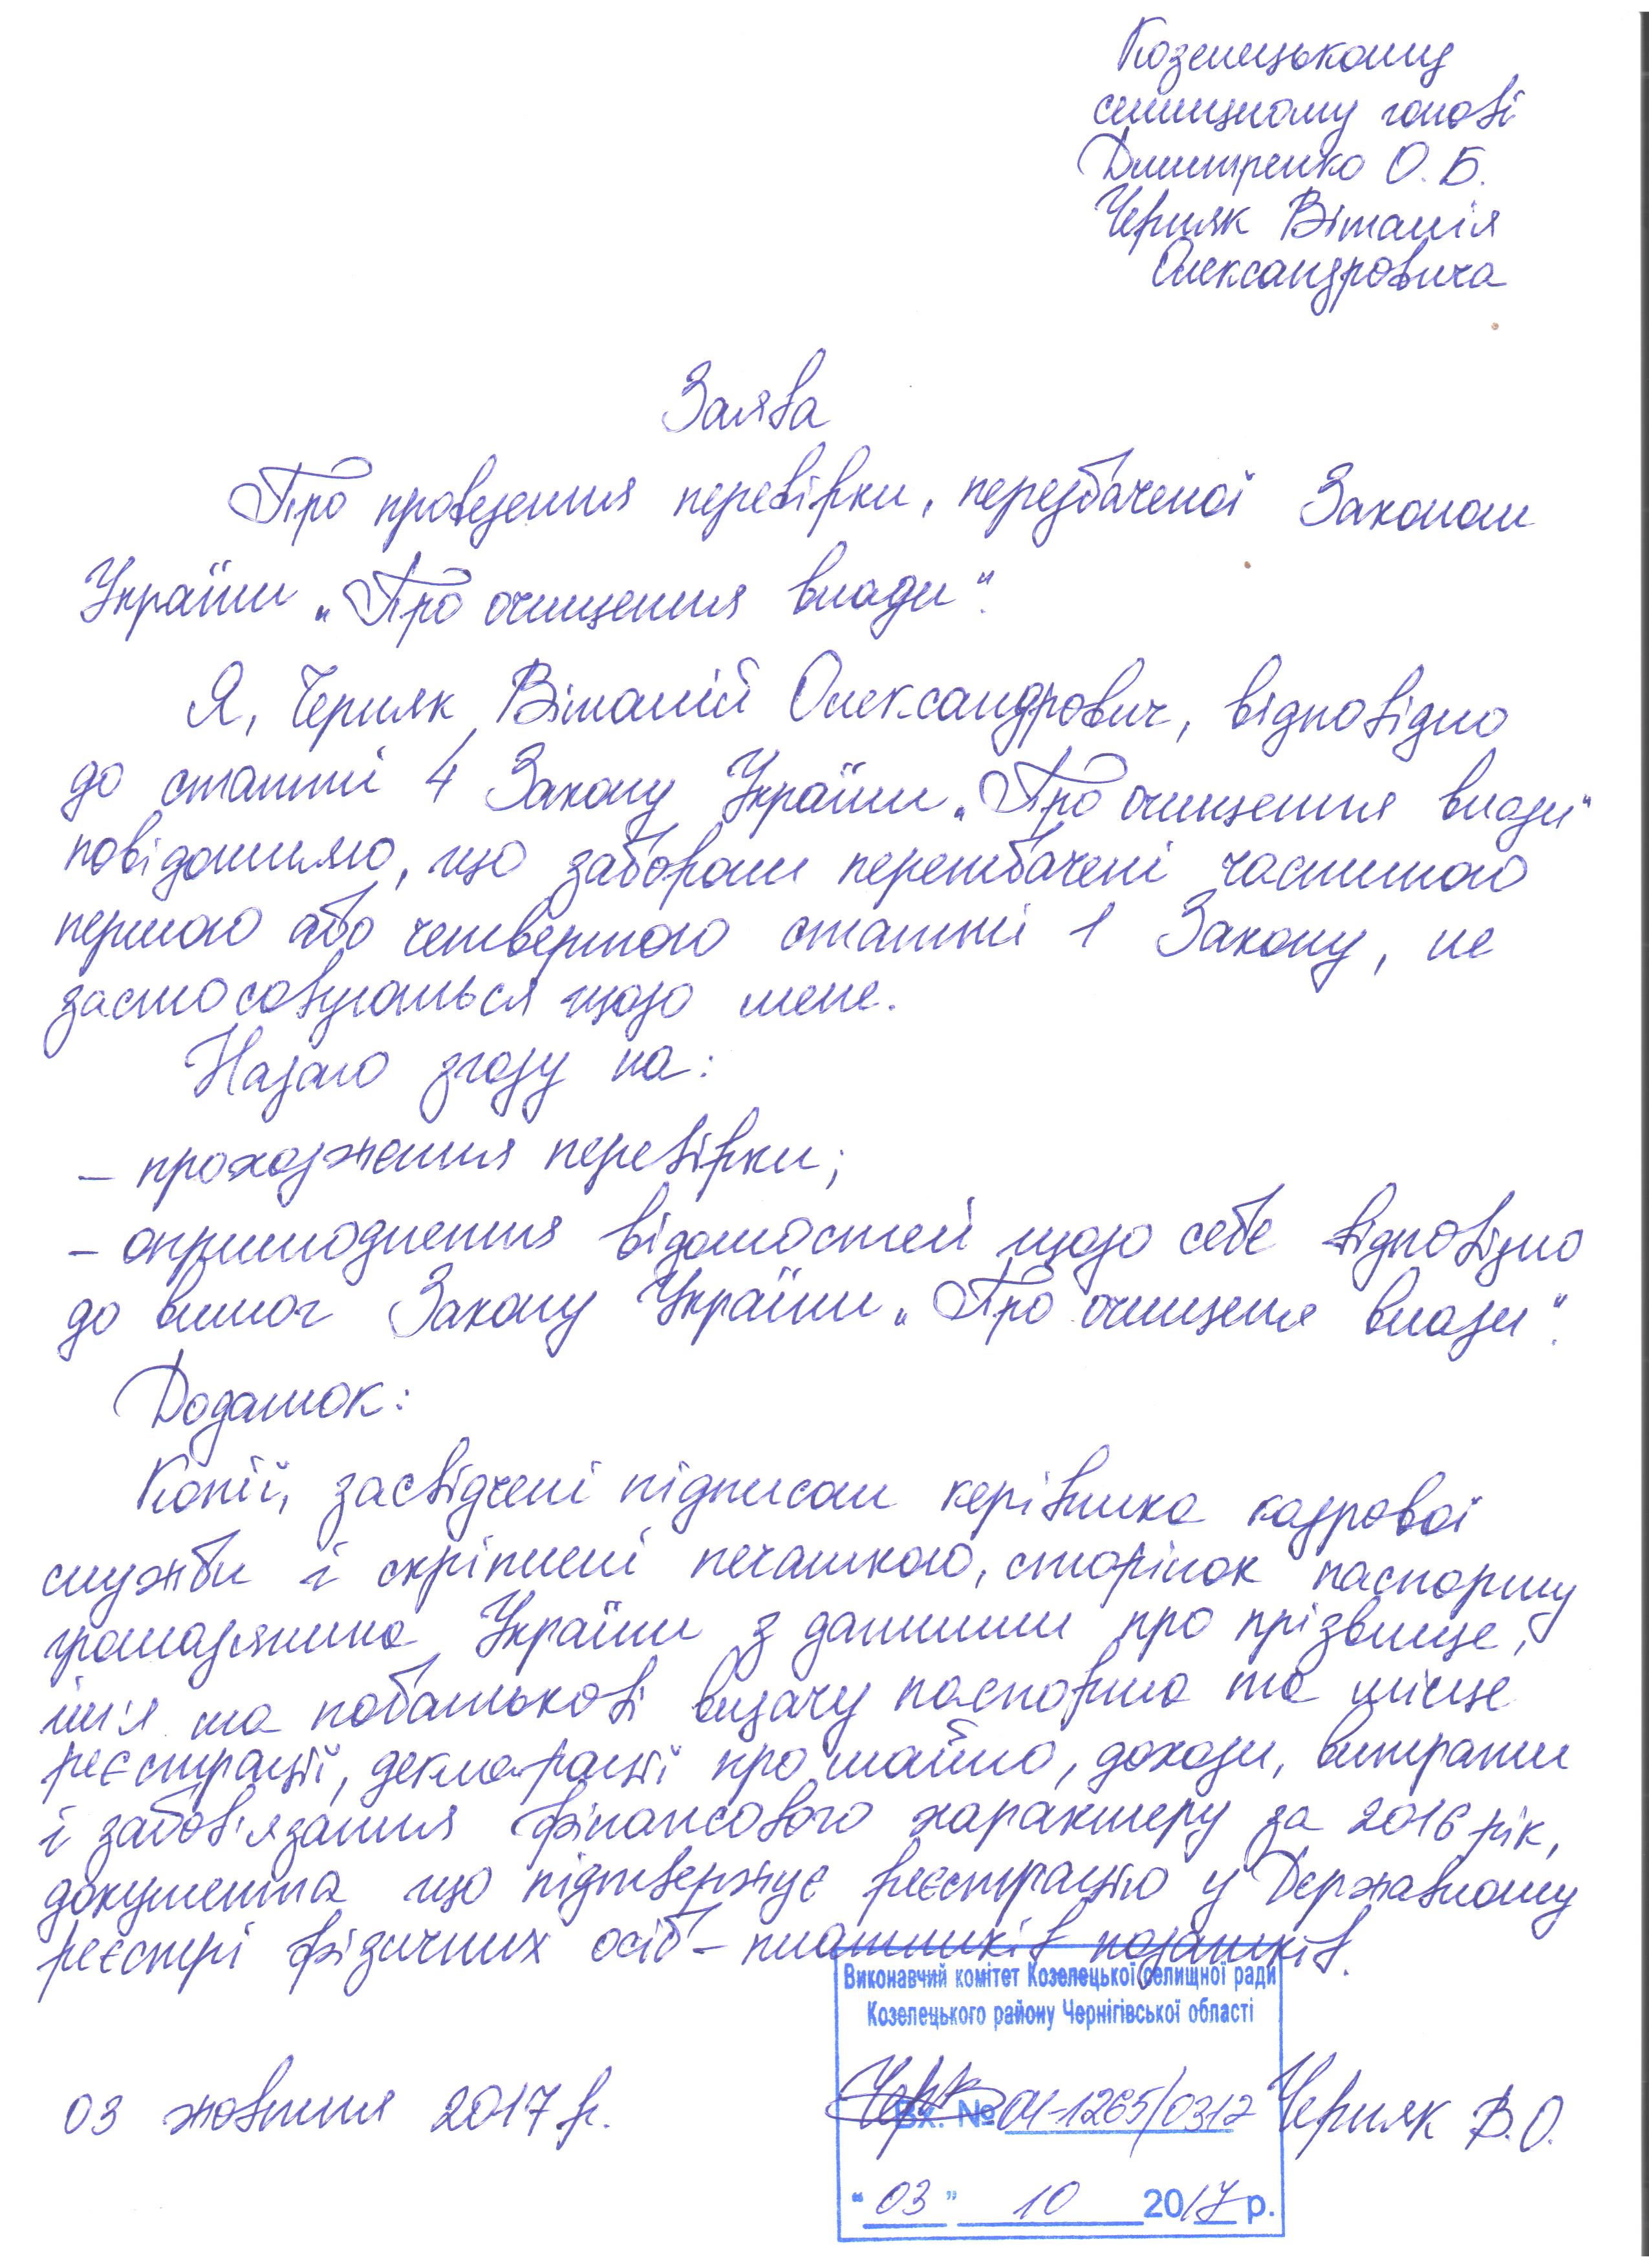 Козелецькому
селищному голові
Дмитренко О. Б.
Черняк Віталія
Олександровича
Заява
Про проведення перевірки, передбаченої Законом
України „Про очищення влади".
Я, Черняк Віталій Олександрович, відповідно
до статті 4 Закону України „Про очищення влади"
повідомляю, що заборони перетбачені частиною
першою або четвертою статті 1 Закону, не
застосовуються щодо мене.
Надаю згоду на:
– проходження перевірки;
– оприлюднення відомостей щодо себе відповідно
до вимог Закону України „Про очищеня влади".
Додаток:
Копії, засвідчені підписом керівника кадрової
служби і скріплені печаткою, сторінок паспорту
громадянина України з даними про прізвище,
ім'я та побатькові видачу паспорта та місце
реєстрації, декларації про майно, доходи, витрати
і забов'язання фінансового характеру за 2016 рік,
документа що підтверджує реєстрацію у Державному
реєстрі фізичних осіб – платників податків.
Виконавчий комітет Козелецької селищної ради
Козелецького району Чернігівської області
03 жовтня 2017 р.
Вх. № 01-1265/0312 Черняк В.О.
"03" 10 2017 р.